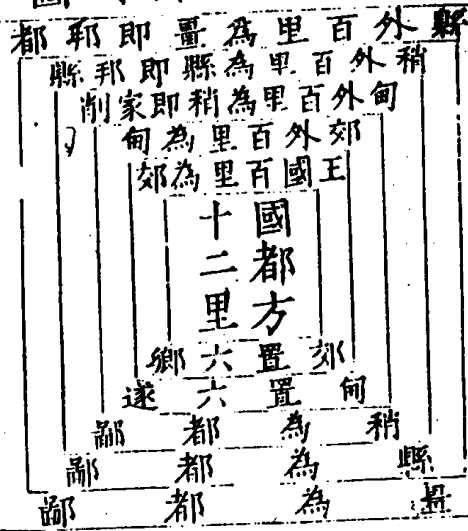 縣外百里為畺即邦都
稍外百里為縣即邦縣
甸外百里為稍即家削
郊外百里為甸
王國百里為郊
國都方
十二里
郊置六鄉
甸置六遂
稍為都鄙
縣為都鄙
畺為都鄙